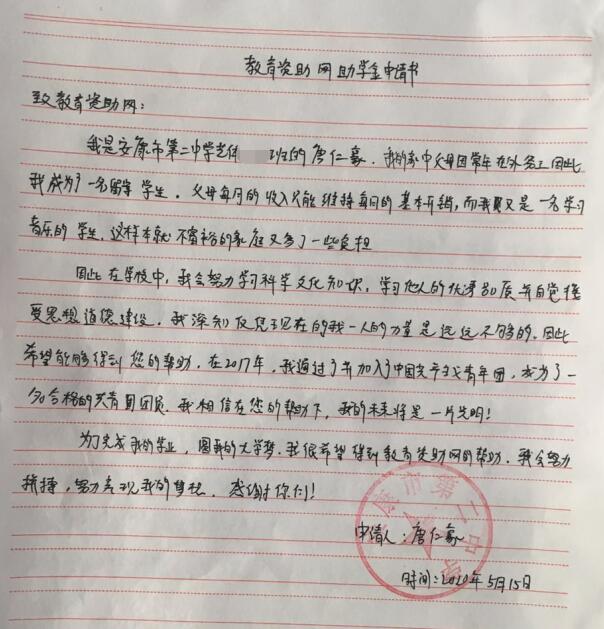 教育资助网助学金申请书
致教育资助网：
我是安康市第二中学艺体 班的唐仁豪，我的家中父母因常年在外务工因此
我成为了一名留守学生。父母每月的收入只能维持每月的基本开销，而我又是一名学习
音乐的学生，这样本就不富裕的家庭又多了一些负担
因此在学校中，我会努力学习科学文化知识，学习他人的优秀品质并自觉接
受思想道德建设。我深知仅凭现在的我一人的力量是远远不够的，因此
希望能够得到您的帮助。在2017年，我通过了并加入了中国共产主义青年团，成为了一
名合格的共青团团员。我相信在您的帮助下，我的未来将是一片光明！
为了完成我的学业，圆我的大学梦，我很希望得到教育资助网的帮助，我会努力
拼搏，努力实现我的梦想。感谢你们！
康市第二中学
申请人：唐仁豪
时间：2020年5月15日